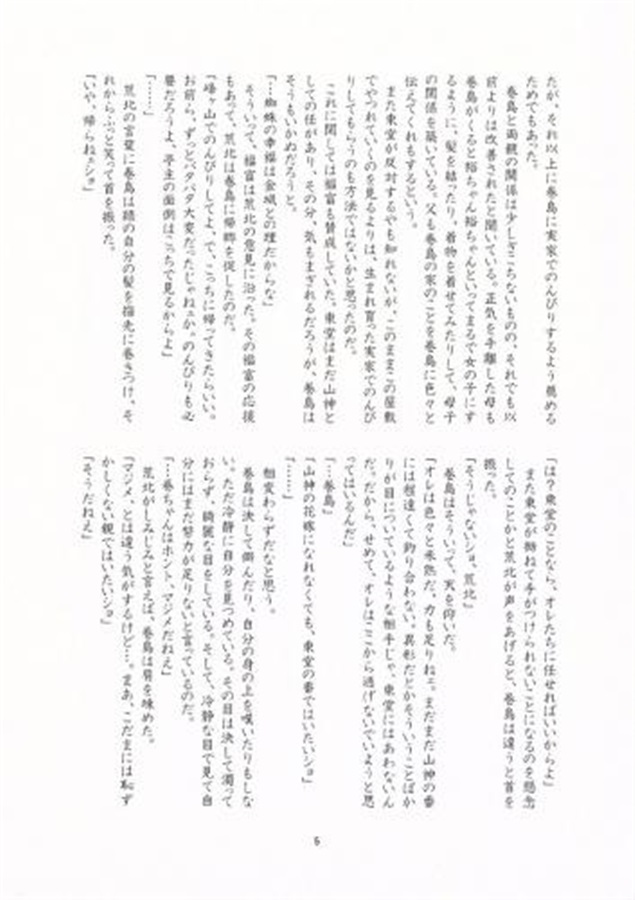 たが、それ以上に巻島に実家でのんびりするよう薦める
ためでもあった。
巻島と両親の関係は少しぎこちないものの、それでも以
前よりは改善されたと聞いている。正気を手離した母も
巻島がくると裕ちゃん裕ちゃんといってまるで女の子にす
るように、髪を結ったり、着物を着せてみたりして、母子
の関係を築いている。父も巻島の家のことを巻島に色々と
伝えてくれもするという。
また東堂が反対するやも知れないが、このままこの屋敷
でやつれていくのを見るよりは、生まれ育った実家でのんび
りしてもらうのも方法ではないかと思ったのだ。
これに関しては福富も賛成していた。東堂はまだ山神と
しての任があり、その分、気もまぎれるだろうが、巻島は
そうもいかぬだろうと。
「…蜘蛛の幸福は金城との理だからな」
そういって、福富は荒北の意見に沿った。その福富の応援
もあって、荒北は巻島に帰郷を促したのだ。
「峰ヶ山でのんびりしてよ、で、こっちに帰ってきたらいい。
お前ら、ずっとバタバタ大変だったじゃねェか。のんびりも必
要だろうよ、亭主の面倒はこっちで見るからよ」
「……」
荒北の言葉に巻島は踏の自分の髪を指先に巻きつけ、そ
れからふっと笑って首を振った。
「いや、帰らねェショ」
「は？東堂のことなら、オレたちに任せればいいからよ」
また東堂が拗ねて手がつけられないことになるのを懸念
してのことかと荒北が声をあげると、巻島は違うと首を
振った。
「そうじゃないショ、荒北」
巻島はそういって、実を仰いだ。
「オレは色々と未熟だ。力も足りねェ。まだまだ山神の番
には程遠くて釣り合わない。異形だとかそういうことばか
りが目についているような相手じゃ、東堂にはあわないん
だ。だから、せめて、オレはここから逃げないでいようと思
ってはいるんだ」
「…巻島」
「山神の花嫁になれなくても、東堂の番ではいたいショ」
「……」
相変わらずだなと思う。
巻島は決して僻んだり、自分の身の上を嘆いたりもしな
い。ただ冷静に自分を見つめている。その目は決して濁って
おらず、綺麗な目をしている。そして、冷静な目で見て自
分にはまだ努力が足りないと言っているのだ。
「…巻ちゃんはホント、マジメだねえ」
荒北がしみじみと言えば、巻島は肩を竦めた。
「マジメ、とは違う気がするけど…。まあ、こだまには恥ず
かしくない親ではいたいショ」
「そうだねえ」
5